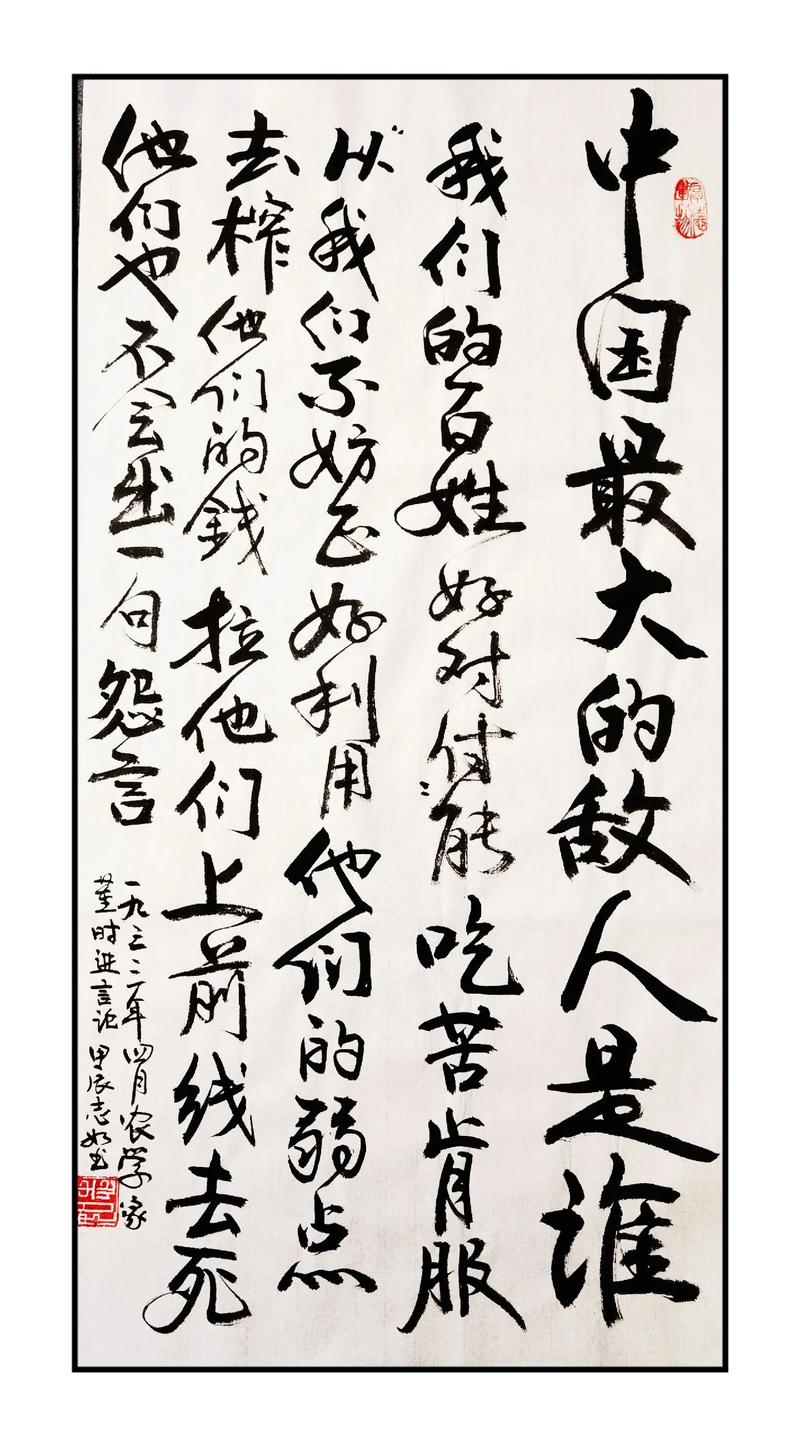 中国最大的敌人是谁
我们的百姓好对付能吃苦肯服
从我们不妨正好利用他们的弱点
去榨他们的錢拉他们上前线去死
他们也不会出一句怨言
一九三二年四月农学家
董时进言论 甲辰志如书